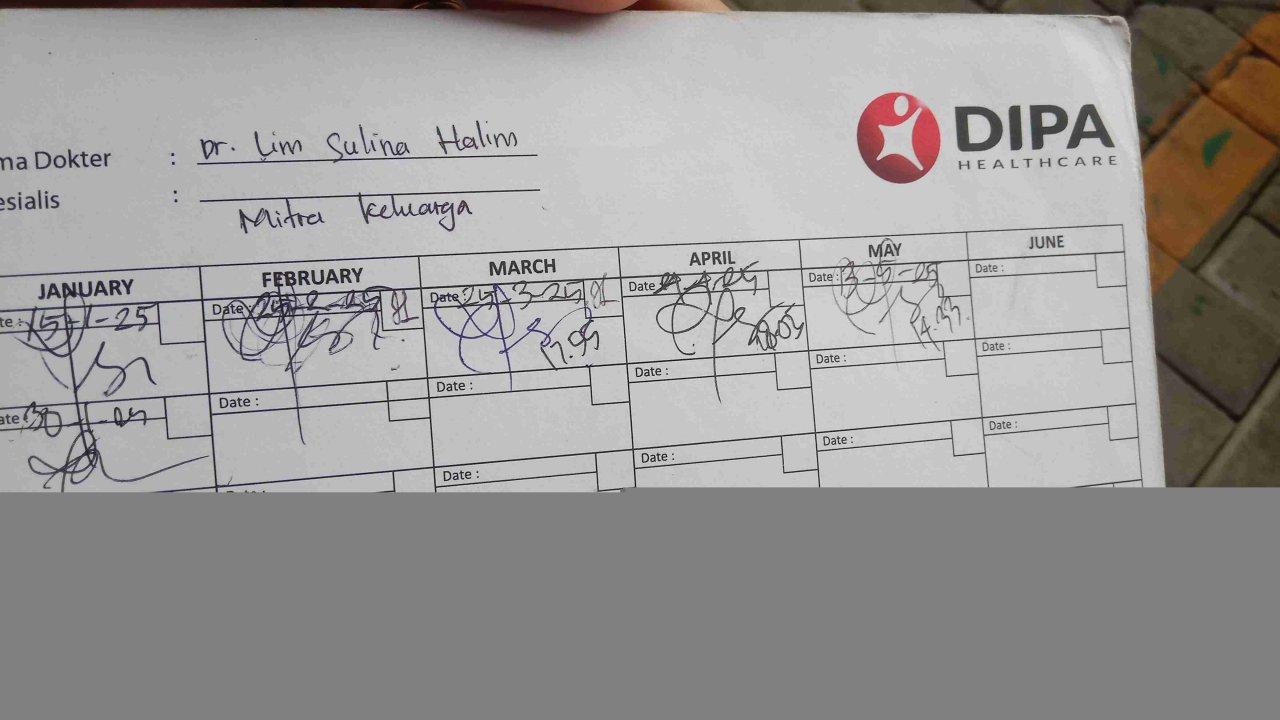 DIPA
HEALTHCARE
ma Dokter : Dr. Lim Sulina Halim
esialis :
Mitra Keluarga
JANUARY FEBRUARY MARCH APRIL MAY JUNE
te : 15-1-25 Date 25-2-25 Date 25-3-25 Date Date : 3-5-25 Date :
17.55
ate 30-1-25 Date : Date : Date : Date : Date :
Date : Date : Date : Date :